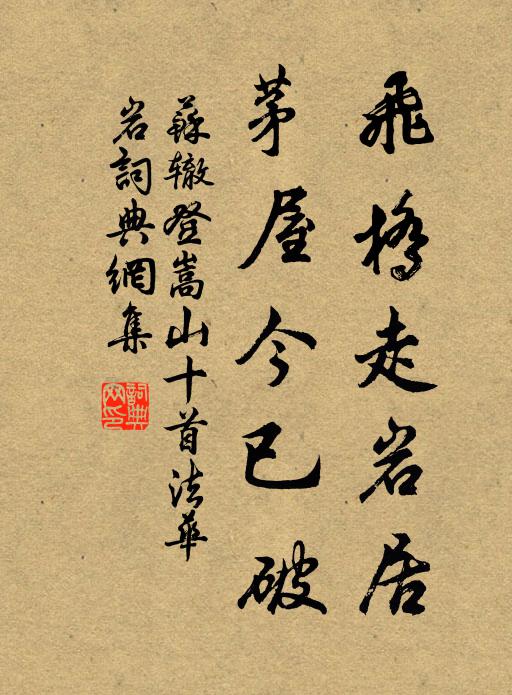 飛橋走岩居
茅屋今已破
蘇辙登嵩山十首法華
岩詞典網集
詞典
网印